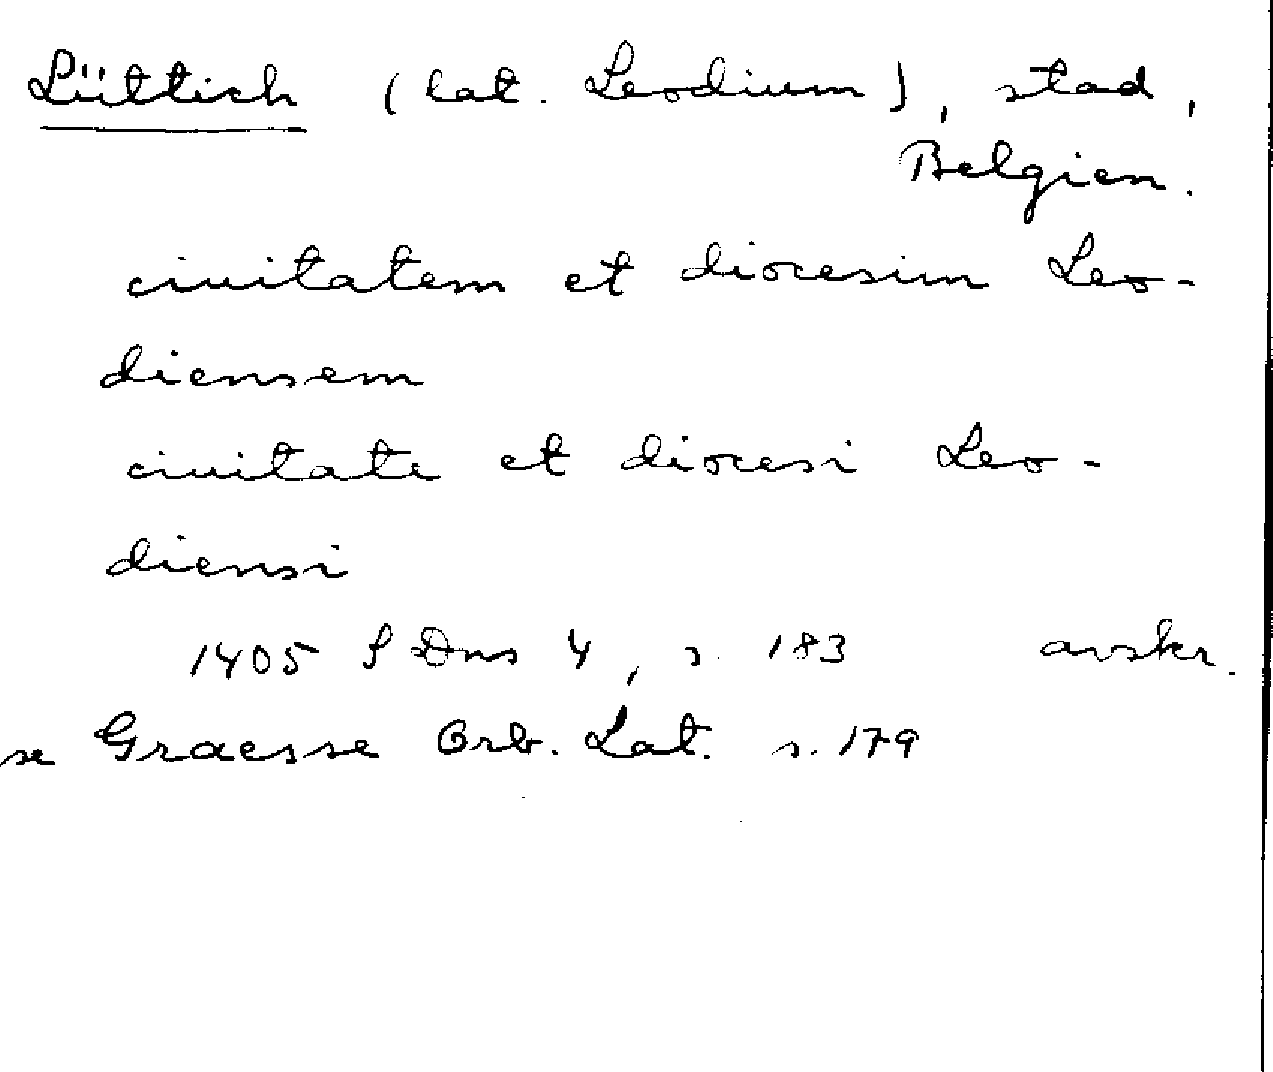 Lüttich (lat. Leodium), stad,
Belgien.
ciuitatem et diocesim Leo-
diensem
ciuitate et diocesi Leo-
diensi
1405 SDns 4, s. 183 avskr.
se Graesse Orb. Lat. s. 179